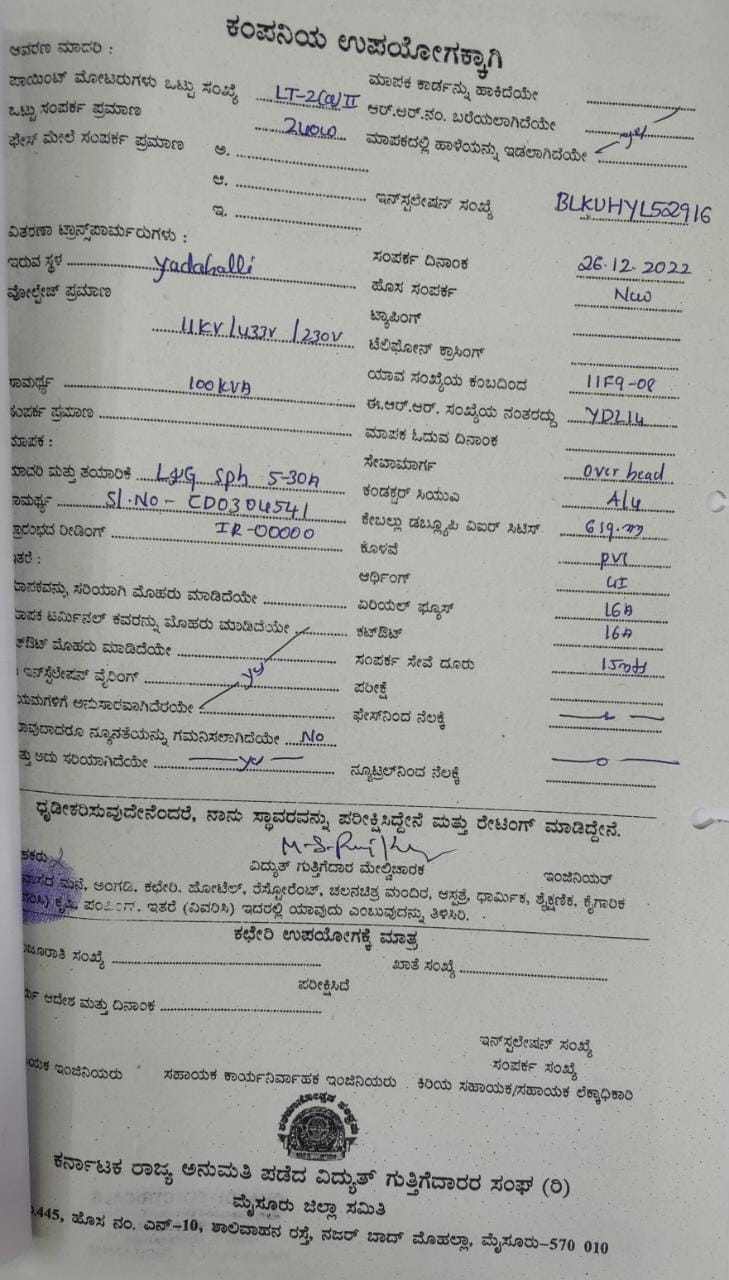 ಕಂಪನಿಯ ಉಪಯೋಗಕ್ಕಾಗಿ
ಆವರಣ ಮಾದರಿ :
ಪಾಯಿಂಟ್ ಮೋಟರುಗಳು ಒಟ್ಟು ಸಂಖ್ಯೆ LT-2(a)II ಮಾಪಕ ಕಾರ್ಡನ್ನು ಹಾಕಿದೆಯೇ
ಒಟ್ಟು ಸಂಪರ್ಕ ಪ್ರಮಾಣ ಆರ್.ಆರ್.ನಂ. ಬರೆಯಲಾಗಿದೆಯೇ
ಫೇಸ್ ಮೇಲೆ ಸಂಪರ್ಕ ಪ್ರಮಾಣ ಅ. ಮಾಪಕದಲ್ಲಿ ಹಾಳೆಯನ್ನು ಇಡಲಾಗಿದೆಯೇ yes
ಆ. ಇನ್‌ಸ್ಟಲೇಷನ್ ಸಂಖ್ಯೆ BLKUHYL52916
ಇ.
ವಿತರಣಾ ಟ್ರಾನ್ಸ್‌ಪಾರ್ಮರುಗಳು :
ಇರುವ ಸ್ಥಳ Yadahalli ಸಂಪರ್ಕ ದಿನಾಂಕ 26.12.2022
ವೋಲ್ಟೇಜ್ ಪ್ರಮಾಣ ಹೊಸ ಸಂಪರ್ಕ New
11KV/433V/230V ಟ್ಯಾಪಿಂಗ್
ಟೆಲಿಫೋನ್ ಕ್ರಾಸಿಂಗ್
ಸಾಮರ್ಥ್ಯ 100KVA ಯಾವ ಸಂಖ್ಯೆಯ ಕಂಬದಿಂದ 11F9-08
ಸಂಪರ್ಕ ಪ್ರಮಾಣ ಈ.ಆರ್.ಆರ್. ಸಂಖ್ಯೆಯ ನಂತರದ್ದು YDL14
ಮಾಪಕ : ಮಾಪಕ ಓದುವ ದಿನಾಂಕ
ಮಾದರಿ ಮತ್ತು ತಯಾರಿಕೆ L&G Sph 5-30A ಸೇವಾಮಾರ್ಗ over head
ಸಾಮರ್ಥ್ಯ Sl.No - CD0304541 ಕಂಡಕ್ಟರ್ ಸಿಯುವಿ Alu
ಪ್ರಾರಂಭದ ರೀಡಿಂಗ್ IR-00000 ಕೇಬಲ್ಲು ಡಬ್ಲ್ಯೂಪಿ ವಿಐರ್ ಸಿಟಿಸ್. 6sq.m
ಇತರೆ : ಕೊಳವೆ pvc
ಮಾಪಕವನ್ನು ಸರಿಯಾಗಿ ಮೊಹರು ಮಾಡಿದೆಯೇ ಆರ್ಥಿಂಗ್ GI
ಮಾಪಕ ಟರ್ಮಿನಲ್ ಕವರನ್ನು ಮೊಹರು ಮಾಡಿದೆಯೇ ಏರಿಯಲ್ ಫ್ಯೂಸ್ 16A
ಕಟ್‌ಔಟ್ ಮೊಹರು ಮಾಡಿದೆಯೇ ಕಟ್‌ಔಟ್ 16A
ಇನ್‌ಸ್ಟೆಲೇಷನ್ ವೈರಿಂಗ್ yes ಸಂಪರ್ಕ ಸೇವೆ ದೂರು 15mts
ನಿಯಮಗಳಿಗೆ ಅನುಸಾರವಾಗಿದೆರಯೇ ಪರೀಕ್ಷೆ
ಯಾವುದಾದರೂ ನ್ಯೂನತೆಯನ್ನು ಗಮನಿಸಲಾಗಿದೆಯೇ No ಫೇಸ್‌ನಿಂದ ನೆಲಕ್ಕೆ
ಮತ್ತು ಅದು ಸರಿಯಾಗಿದೆಯೇ yes ನ್ಯೂಟ್ರಲ್‌ನಿಂದ ನೆಲಕ್ಕೆ — 0 —
ಧೃಡೀಕರಿಸುವುದೇನೆಂದರೆ, ನಾನು ಸ್ಥಾವರವನ್ನು ಪರೀಕ್ಷಿಸಿದ್ದೇನೆ ಮತ್ತು ರೇಟಿಂಗ್ ಮಾಡಿದ್ದೇನೆ.
ವಿದ್ಯುತ್ ಗುತ್ತಿಗೆದಾರ ಮೇಲ್ವಿಚಾರಕ ಇಂಜಿನಿಯರ್
ವಾಸದ ಮನೆ, ಅಂಗಡಿ. ಕಛೇರಿ. ಹೋಟೆಲ್, ರೆಸ್ಟೋರೆಂಟ್, ಚಲನಚಿತ್ರ ಮಂದಿರ, ಆಸ್ಪತ್ರೆ, ಧಾರ್ಮಿಕ, ಶೈಕ್ಷಣಿಕ, ಕೈಗಾರಿಕ
ಕೃಷಿ. ಇತರೆ (ವಿವರಿಸಿ) ಇದರಲ್ಲಿ ಯಾವುದು ಎಂಬುವುದನ್ನು ತಿಳಿಸಿರಿ.
ಕಛೇರಿ ಉಪಯೋಗಕ್ಕೆ ಮಾತ್ರ
ಸಂಖ್ಯೆ ಖಾತೆ ಸಂಖ್ಯೆ
ಪರೀಕ್ಷಿಸಿದೆ
ಆದೇಶ ಮತ್ತು ದಿನಾಂಕ
ಇನ್‌ಸ್ಟಲೇಷನ್ ಸಂಖ್ಯೆ
ಸಂಪರ್ಕ ಸಂಖ್ಯೆ
ಇಂಜಿನಿಯರು ಸಹಾಯಕ ಕಾರ್ಯನಿರ್ವಾಹಕ ಇಂಜಿನಿಯರು ಕಿರಿಯ ಸಹಾಯಕ/ಸಹಾಯಕ ಲೆಕ್ಕಾಧಿಕಾರಿ
ಕರ್ನಾಟಕ ರಾಜ್ಯ ಅನುಮತಿ ಪಡೆದ ವಿದ್ಯುತ್ ಗುತ್ತಿಗೆದಾರರ ಸಂಘ (ರಿ)
ಮೈಸೂರು ಜಿಲ್ಲಾ ಸಮಿತಿ
.445, ಹೊಸ ನಂ. ಎನ್-10, ಶಾಲಿವಾಹನ ರಸ್ತೆ, ನಜರ್ ಬಾದ್ ಮೊಹಲ್ಲಾ, ಮೈಸೂರು-570 010